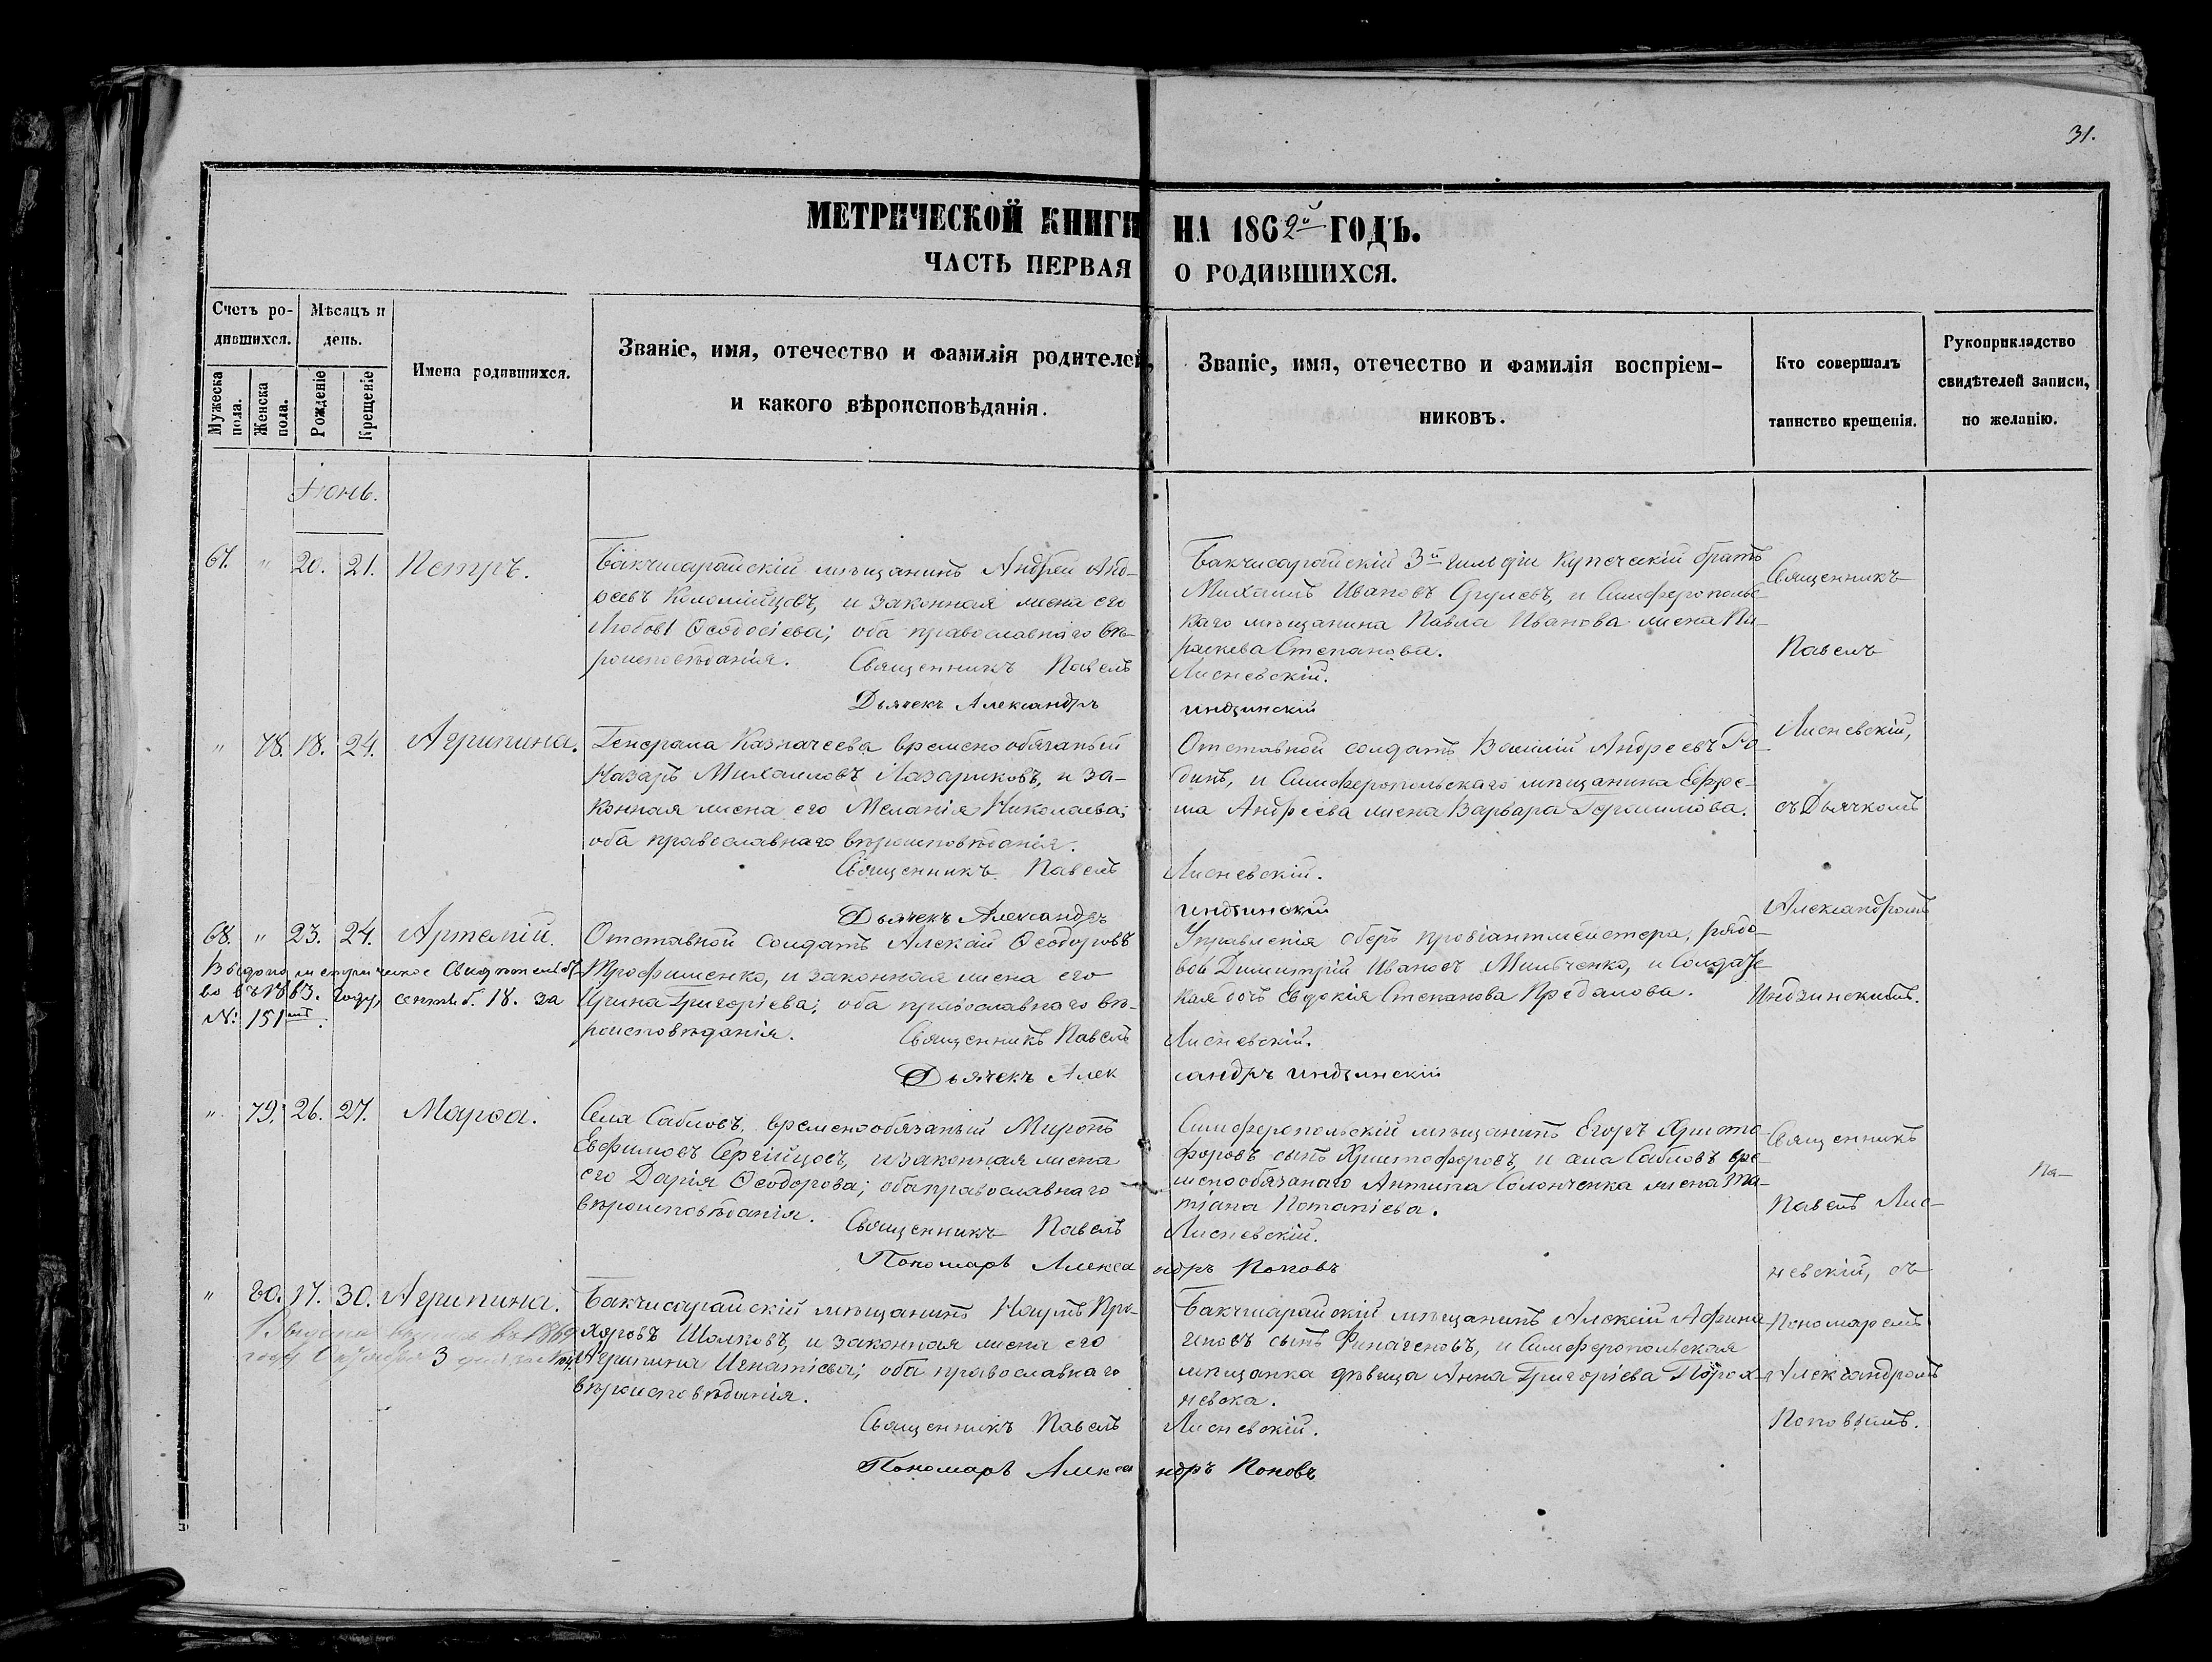 31.
МЕТРИЧЕСКОЙ КНИГИ НА 1862й ГОДЪ.
ЧАСТЬ ПЕРВАЯ О РОДИВШИХСЯ.
Счетъ ро-
дившихся.
Мужеска пола.
Женска пола.
Мѣсяцъ и
день.
Рожденіе
Крещеніе
Имена родившихся.
Званіе, имя, отечество и фамилія родителей,
и какого вѣроисповѣданія.
Званіе, имя, отечество и фамилія воспріем-
никовъ.
Кто совершалъ
таинство крещенія.
Рукоприкладство
свидѣтелей записи,
по желанію.
Іюнь.
67. " 20. 21. Петръ.
Бакчисарайскій мѣщанинъ Андрей Анд-
реевъ Коломійцовъ, и законная жена его
Любовь Ѳеодосіева; оба православнаго вѣ-
роисповѣданія. Священникъ Павелъ
Дьячекъ Александръ
Бакчисарайскій 3й гильдіи купеческій братъ
Михаилъ Ивановъ, и Симферопольс-
каго мѣщанина Павла Иванова жена Па-
раскева Степанова.
Лисневскій.
Индзинскій
Священникъ
Павелъ
Лисневскій,
съ Дьячкомъ
Александромъ
Индзинскимъ.
" 78. 18. 24. Агрипина.
Генерала Казначеева времено обязаный
Назаръ Михаиловъ Назариковъ, и за-
конная жена его Меланія Николаева;
оба православнаго вѣроисповѣданія.
Священникъ Павелъ
Дьячекъ Александръ
Отставной солдатъ Василій Андреевъ Ро-
динъ, и Симферопольскаго мѣщанина Ефре-
ма Андреева жена Варвара Герасимова.
Лисневскій.
Индзинскій
68. " 23. 24. Артемій.
Выдано метрическое свидѣтельст-
во въ 1863. году, сентяб. 18. за
№ 151мъ.
Отставной солдатъ Алексій Ѳеодоровъ
Трофименко, и законная жена его
Ирина Григоріева; оба православнаго вѣ-
роисповѣданія. Священникъ Павелъ
Дьячекъ Алек
Управленія оберъ провіантмейстера, рядо-
вой Димитрій Ивановъ Мильченко, и солдатс-
кая дочь Евдокія Степанова Предалова.
Лисневскій.
сандръ Индзинскій
" 79. 26. 27. Марѳа.
Села Сабловъ, временообязаный Миронъ
Евфимовъ Сергійцовъ, и законная жена
его Дарія Ѳеодорова; оба православнаго
вѣроисповѣданія. Священникъ Павелъ
Пономарь Алекса
Симферопольскій мѣщанинъ Егоръ Христо-
форовъ сынъ Христофоровъ, и села Сабловъ вре-
менообязанаго Антипа Солонченка жена Та-
тіана Потапіева.
Лисневскій.
ндръ Поповъ
Священникъ
Павелъ Лис-
невскій, съ
Пономаремъ
Александромъ
Поповымъ.
Па-
" 80. 17. 30. Агрипина.
Бакчисарайскій мѣщанинъ Наумъ Про-
хоровъ Шолковъ, и законная жена его
Агрипина Игнатіева; оба православнаго
вѣроисповѣданія.
Священникъ Павелъ
Пономарь Алекса
Бакчисарайскій мѣщанинъ Алексій Афина-
геновъ сынъ Финагеновъ, и Симферопольская
мѣщанка дѣвица Анна Григоріева Порох-
невска.
Лисневскій.
ндръ Поповъ